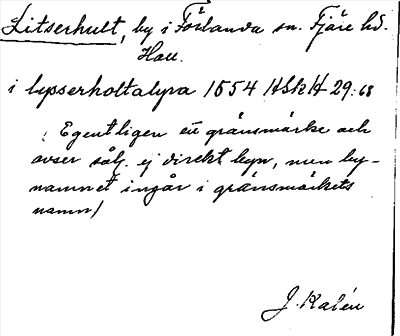 Litserhult, by i Förlanda sn. Fjäre hd.
Hall.
i lysserholtalyra 1654 HSkH 29:68
(Egentligen ett gränsmärke och
avser sålj. ej direkt byn, men by-
namnet ingår i gränsmärkets
namn)
J. Kalén